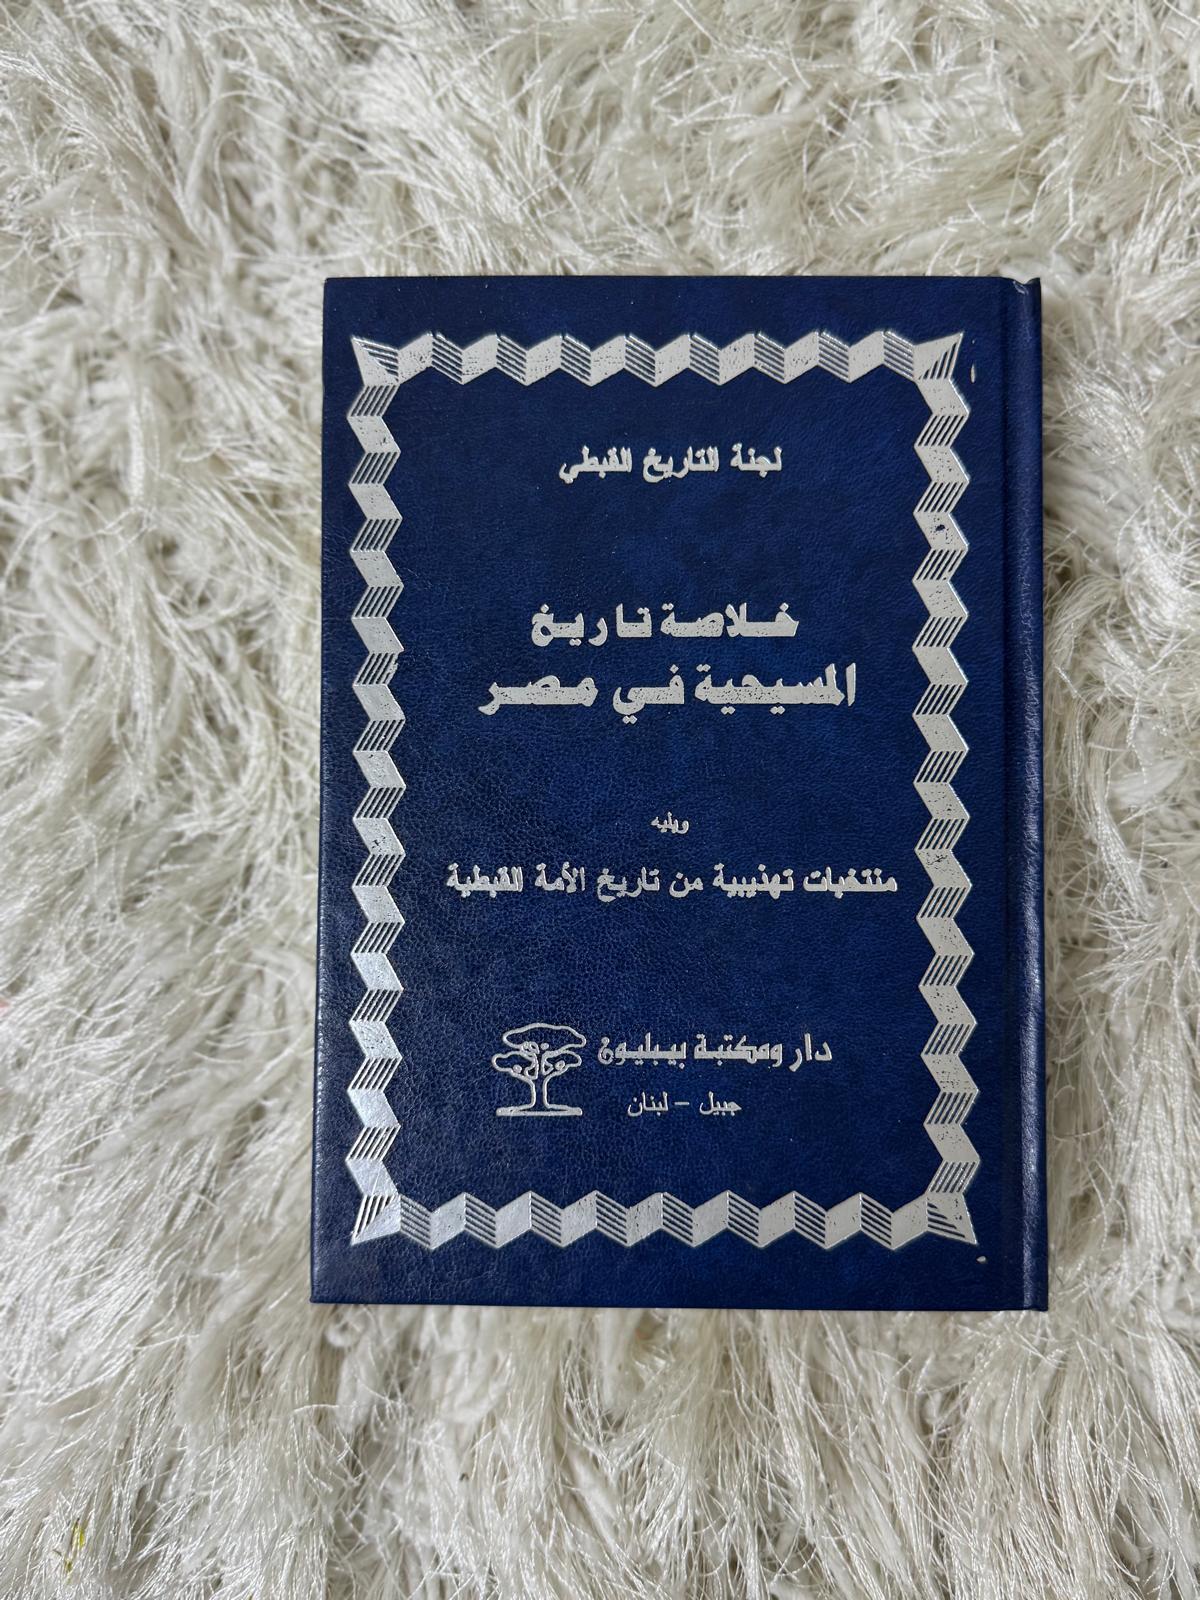 لجنة التاريخ القبطي
خلاصة تاريخ
المسيحية في مصر
ويليه
منتخبات تهذيبية من تاريخ الأمة القبطية
دار ومكتبة بيبليون
جبيل – لبنان